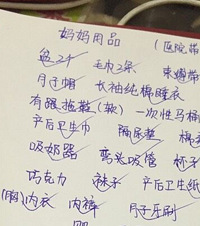 妈妈用品 (医院带
盆2个 毛巾2条 束缚带
月子帽 长袖纯棉睡衣
有跟拖鞋(软) 一次性马桶
产后卫生巾 隔尿垫 棉
吸奶器 弯头吸管 杯子
巧克力 袜子 产后卫生纸
内衣 内裤 月子牙刷